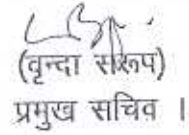 (वृन्दा सरूप)
प्रमुख सचिव ।